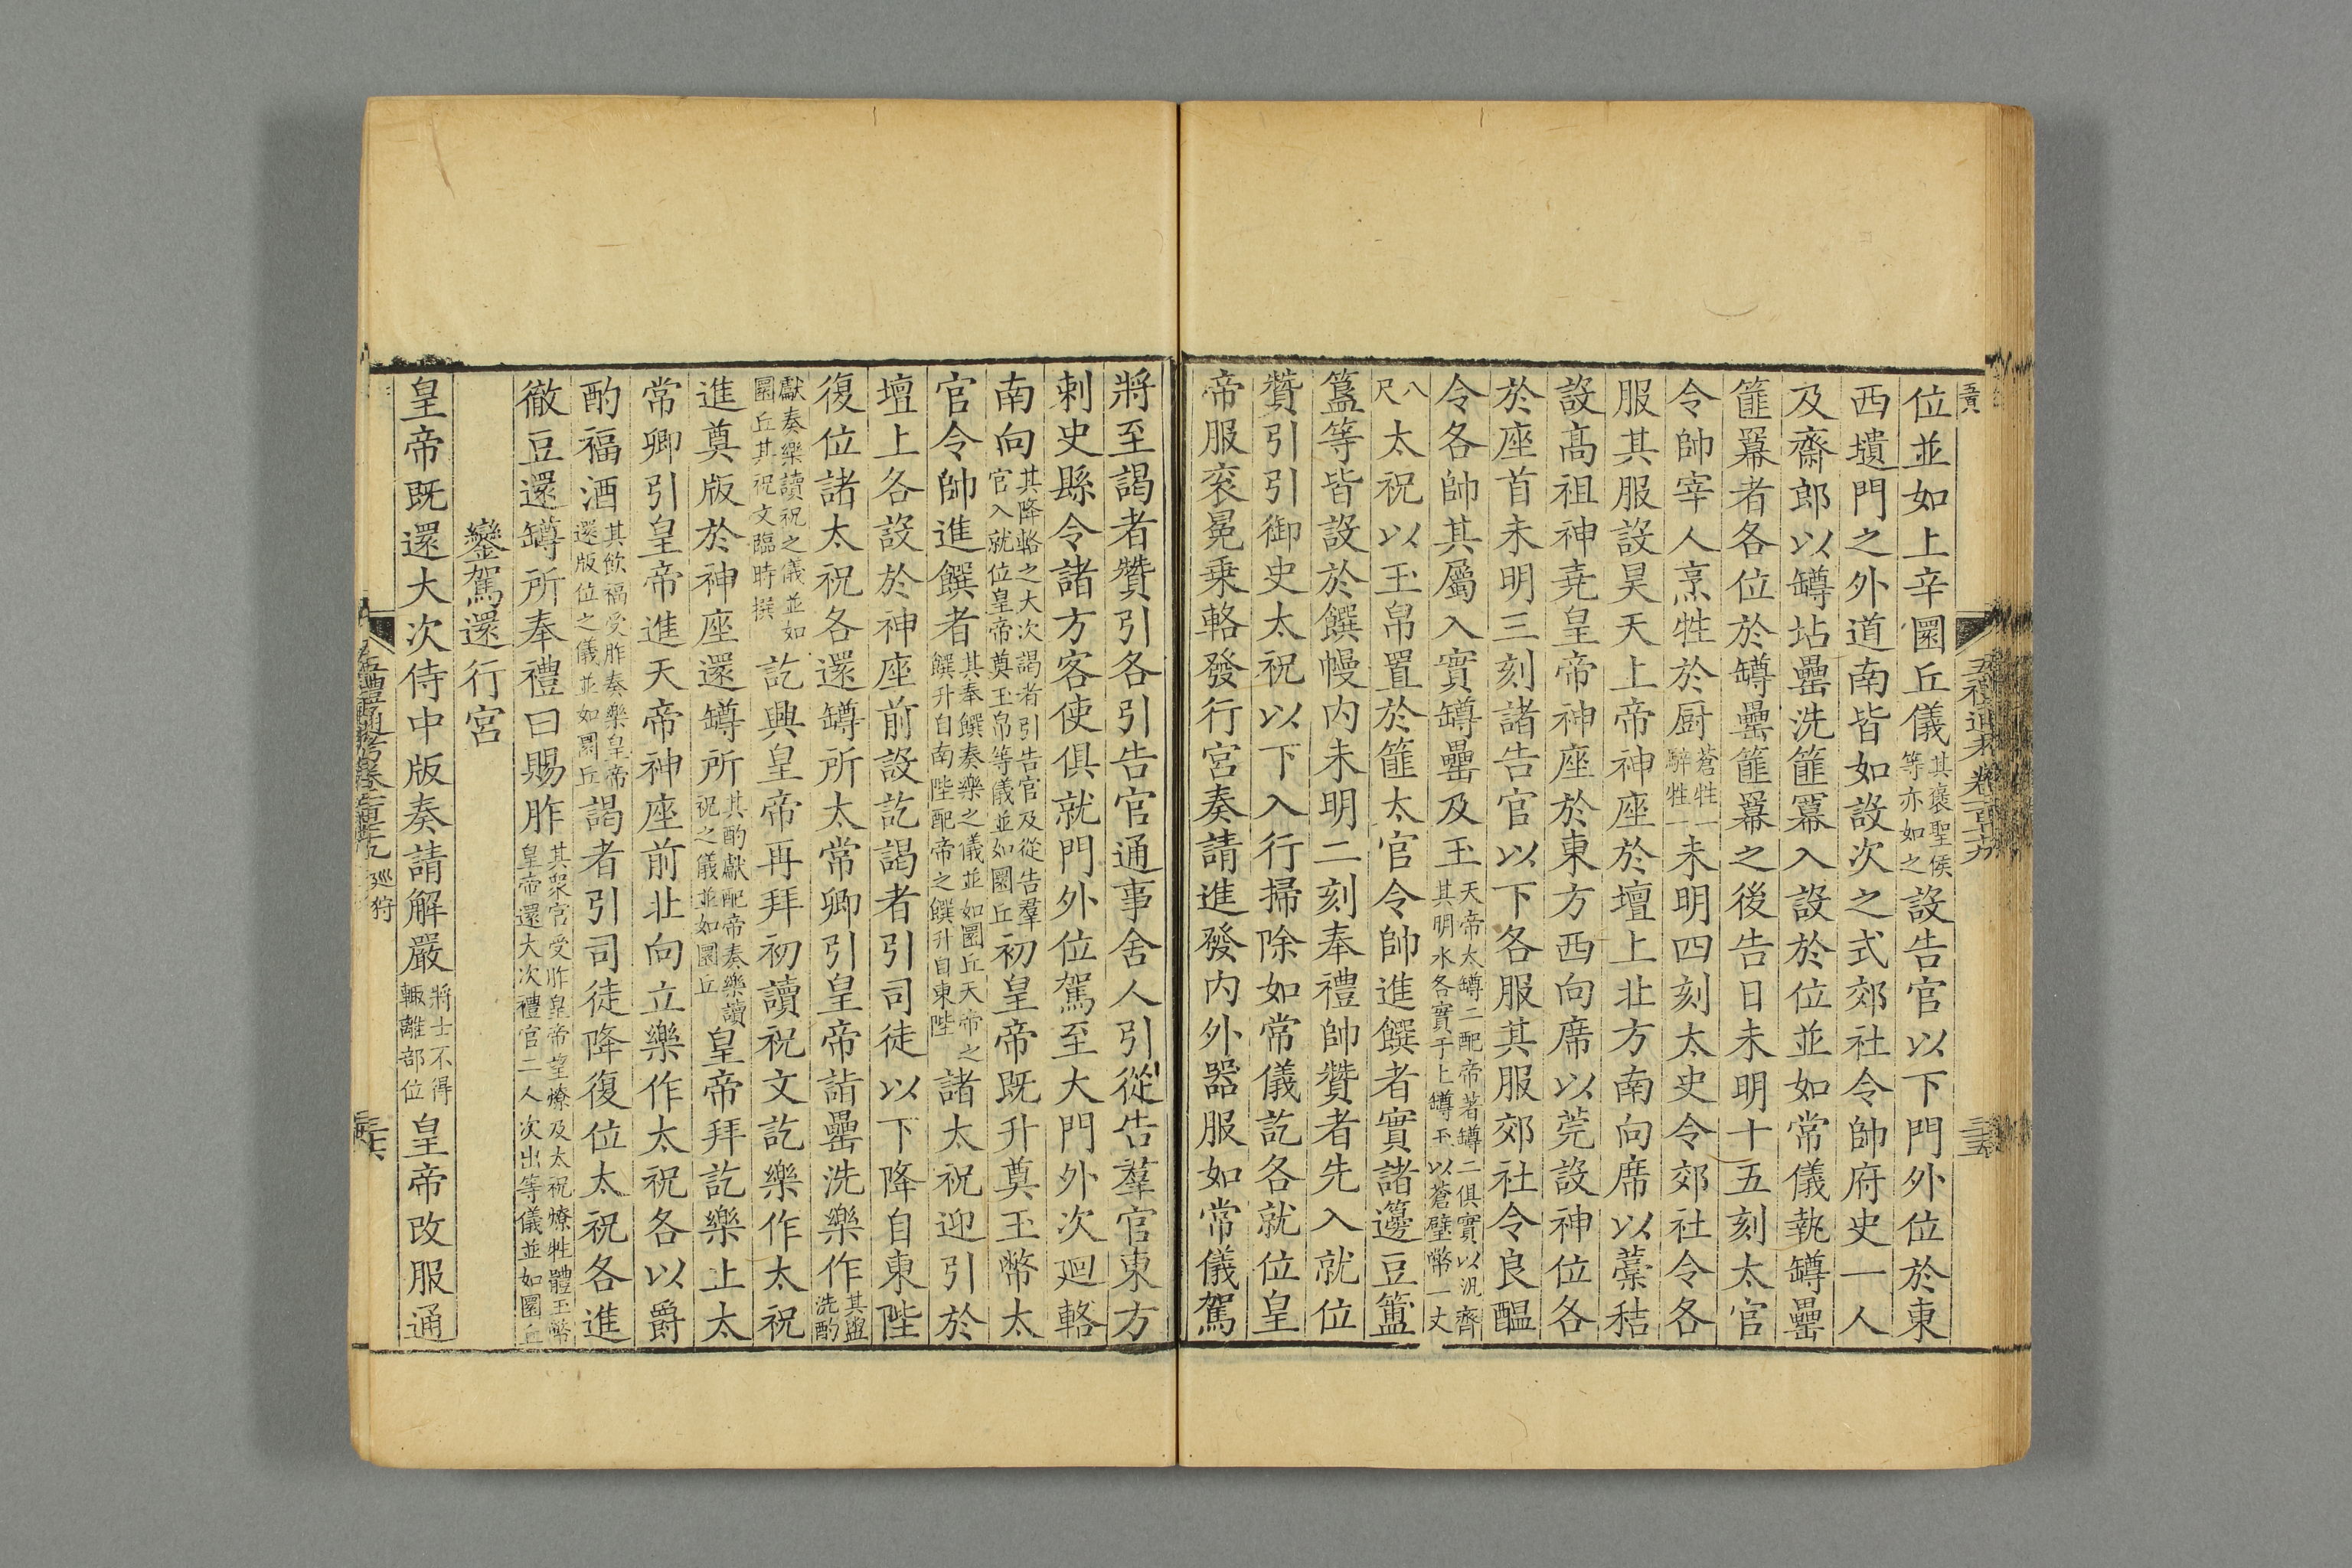 位並如上辛圜丘儀其褒聖侯等亦如之設告官以下門外位於東
西壝門之外道南皆如設次之式郊社令帥府史一人
及齋郎以罇坫罍洗篚冪入設於位並如常儀執罇罍
篚冪者各位於罇罍篚冪之後告日未明十五刻太官
令帥宰人烹牲於厨蒼牲一騂牲一未明四刻太史令郊社令各
服其服設昊天上帝神座於壇上北方南向席以藁秸
設高祖神堯皇帝神座於東方西向席以莞設神位各
於座首未明三刻諸告官以下各服其服郊社令良醞
令各帥其屬入實罇罍及玉天帝太罇二配帝著罇二俱實以汎齊其明水各實于上罇玉以蒼璧幣一丈
八尺太祝以玉帛置於篚太官令帥進饌者實諸籩豆簠
簋等皆設於饌幔内未明二刻奉禮帥贊者先入就位
贊引引御史太祝以下入行掃除如常儀訖各就位皇
帝服衮冕乗輅發行宮奏請進發内外器服如常儀駕
將至謁者贊引各引告官通事舍人引從告羣官東方
刺史縣令諸方客使俱就門外位駕至大門外次廻輅
南向其降輅之大次謁者引告官及從告羣官入就位皇帝奠玉帛等儀並如圜丘初皇帝既升奠玉幣太
官令帥進饌者其奉饌奏樂之儀並如圜丘天帝之饌升自南陛配帝之饌升自東陛諸太祝迎引於
壇上各設於神座前設訖謁者引司徒以下降自東陛
復位諸太祝各還罇所太常卿引皇帝詣罍洗樂作其盥洗酌
獻奏樂讀祝之儀並如圜丘其祝文臨時撰訖興皇帝再拜初讀祝文訖樂作太祝
進奠版於神座還罇所其酌獻配帝奏樂讀祝之儀並如圜丘皇帝拜訖樂止太
常卿引皇帝進天帝神座前北向立樂作太祝各以爵
酌福酒其飲福受胙奏樂皇帝還版位之儀並如圜丘謁者引司徒降復位太祝各進
徹豆還罇所奉禮曰賜胙其衆官受胙皇帝望燎及太祝燎牲體玉幣皇帝還大次禮官二人次出等儀並如圜丘
鑾駕還行宮
皇帝既還大次侍中版奏請解嚴將士不得輙離部位皇帝改服通